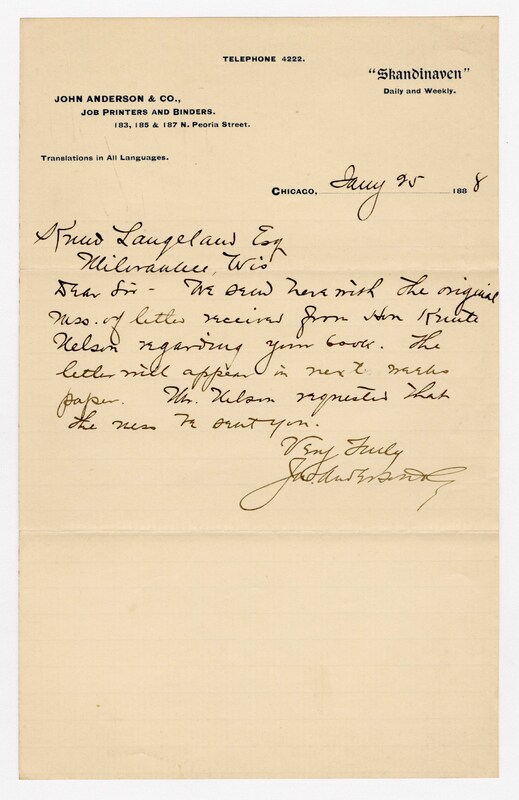 TELEPHONE 4222.
"Skandinaven"
Daily and Weekly.
JOHN ANDERSON & CO.,
JOB PRINTERS AND BINDERS.
183, 185 & 187 N. Peoria Street.
Translations in All Languages.
CHICAGO, Jany 25 1888
Knud Langeland Esq
Milwaukee, Wis
Dear Sir - We send herewith the original
mss. of letter received from Hon Knute
Nelson regarding your book. The
letter will appear in next weeks
paper. Mr. Nelson requested that
the mss be sent you.
Very Truly
Jno. Anderson